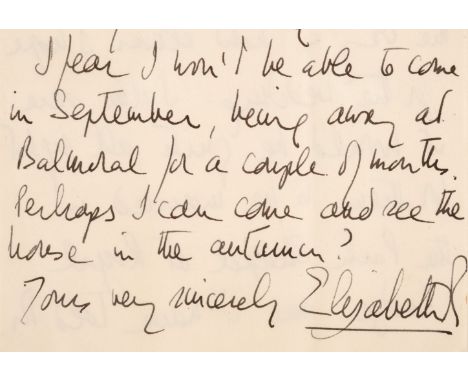 I fear I won't be able to come
in September, being away at
Balmoral for a couple of months.
Perhaps I can come and see the
horse in the autumn?
Yours very sincerely Elizabeth R